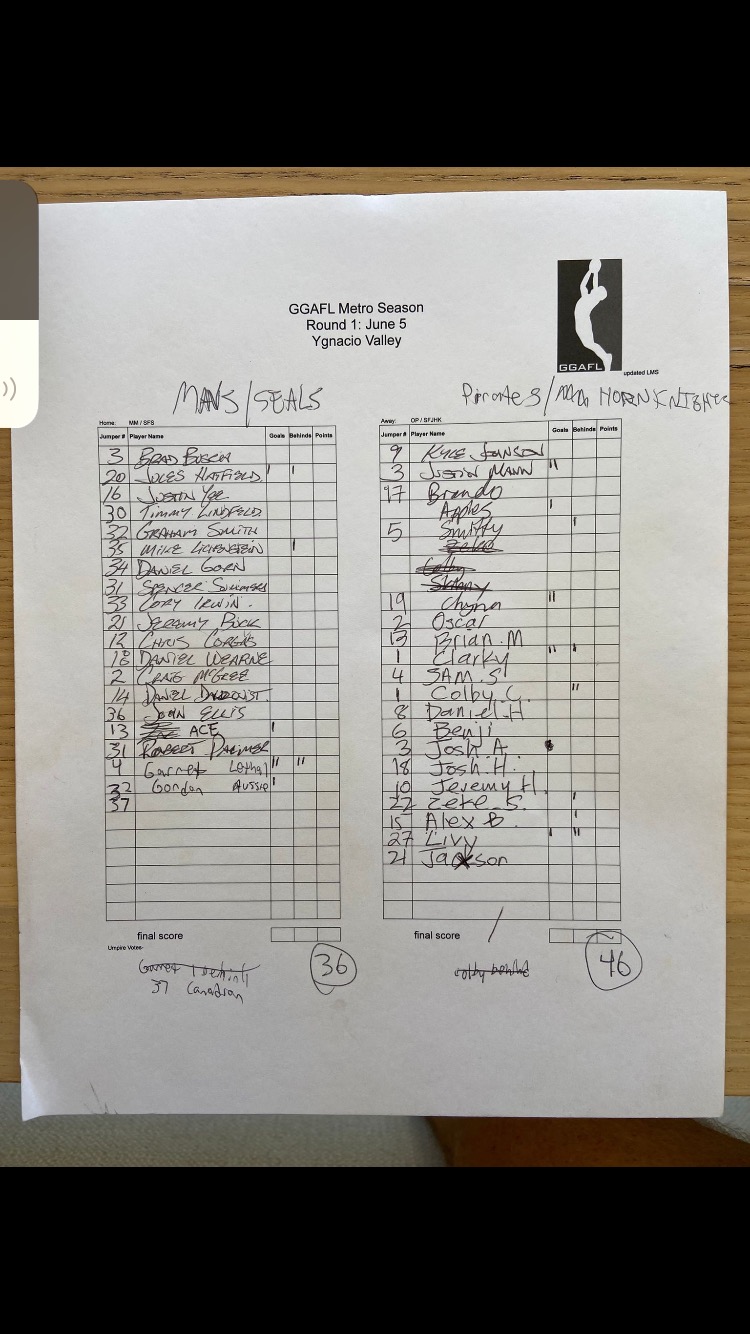 GGAFL Metro Season
Round 1: June 5
Ygnacio Valley
GGAFL
updated LMS
MANS/SEALS
Pirates/ HORN KNIGHTS
Home: MM / SFS
Jumper # Player Name Goals Behinds Points
3 BRAD BUSCH
20 JULES HATFIELD
16 JUSTIN YEE
30 TIMMY LINDFELD
32 GRAHAM SMITH
35 MIKE LICHENSTEIN
34 DANIEL GORN
31 SPENCER
33 CORY IRWIN.
21 JEREMY BUCK
12 CHRIS CORGAS
18 DANIEL WEARNE
2 CRAIG McGREE
14 DANIEL
36 JOHN ELLIS
13 ACE
31 ROBERT PALMER
4 Garnet Lethal
32 Gordon Aussie
37
final score
Umpire Votes-
Garnet 1 behind
37 Canadian
36
Away: OP / SFJHK
Jumper # Player Name Goals Behinds Points
9 KYLE JONSEN
3 JUSTIN MANN
97 Brando
Apples
5 Smitty
Zeke
Colby
Skinny
19 Chyna
2 Oscar
13 Brian.M
1 Clarky
4 SAM.S
1 Colby C.
8 Daniel.H
6 Benji
3 Josh A.
18 Josh.H.
10 Jeremy H.
22 Zeke S.
15 Alex B.
27 Livy
21 Jackson
final score /
colby behind
46